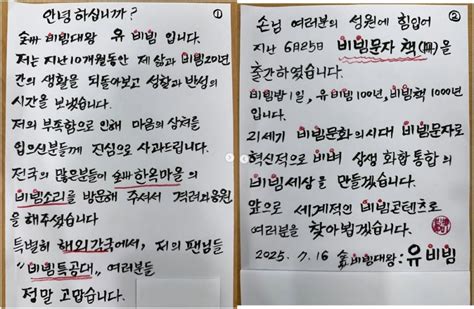 ①
안녕하십니까?
金 비빔대왕 유비빔 입니다.
저는 지난 10개월동안 제 삶과 비빔20년
간의 생활을 되돌아보고 성찰과 반성의
시간을 보냈습니다.
저의 부족함으로 인해 마음의 상처를
입으신분들께 진심으로 사과드립니다.
전국의 많은분들이 한옥마을의
비빔소리를 방문해 주셔서 격려와응원
을 해주셨습니다
특별히 해외각국에서, 저의 팬님들
"비빔특공대" 여러분들
정말 고맙습니다.
②
손님 여러분의 성원에 힘입어
지난 6月25日 비빔문자 책(冊)을
출간하였습니다.
비빔밥1일, 유비빔100년, 비빔책 1000년
입니다.
21세기 비빔문화의시대 비빔문자로
혁신적으로 비벼 상생 화합 통합의
비빔세상을 만들겠습니다.
앞으로 세계적인 비빔콘텐츠로
여러분을 찾아뵙겠습니다.
2025. 7. 16 비빔대왕: 유비빔